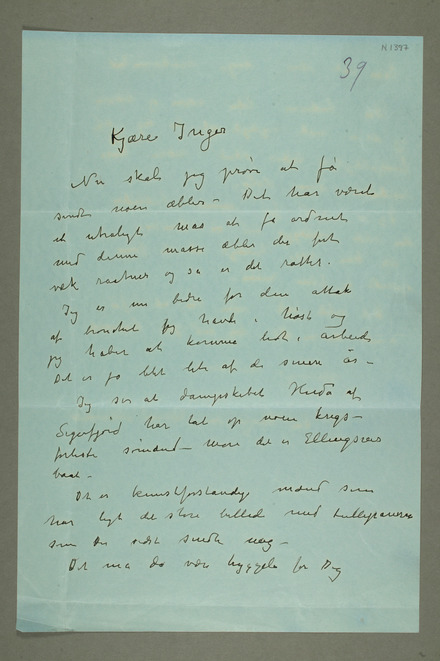 N 1397
39
Kjære Inger
Nu skal jeg prøve at få
sendt noen æbler – Det har været
et utroligt mas at få ordnet
med denne masse æbler der fort
væk råtner og så er det rotter.
Jeg er nu bedre for den attak
af bronchit jeg havde i høst og
jeg håber at komme lidt i arbeide
Det er jo blit lite af de senere år –
Jeg ser at dampskibet Hilda af
Sigerfjord har tat op noen krigs-
forliste sømænd – mon det er Ellingsens
båt –
Det er kunstforstandige mænd som
har
de store
billed med
som De
sendte mig –
Det må da være hyggeligt for Dig